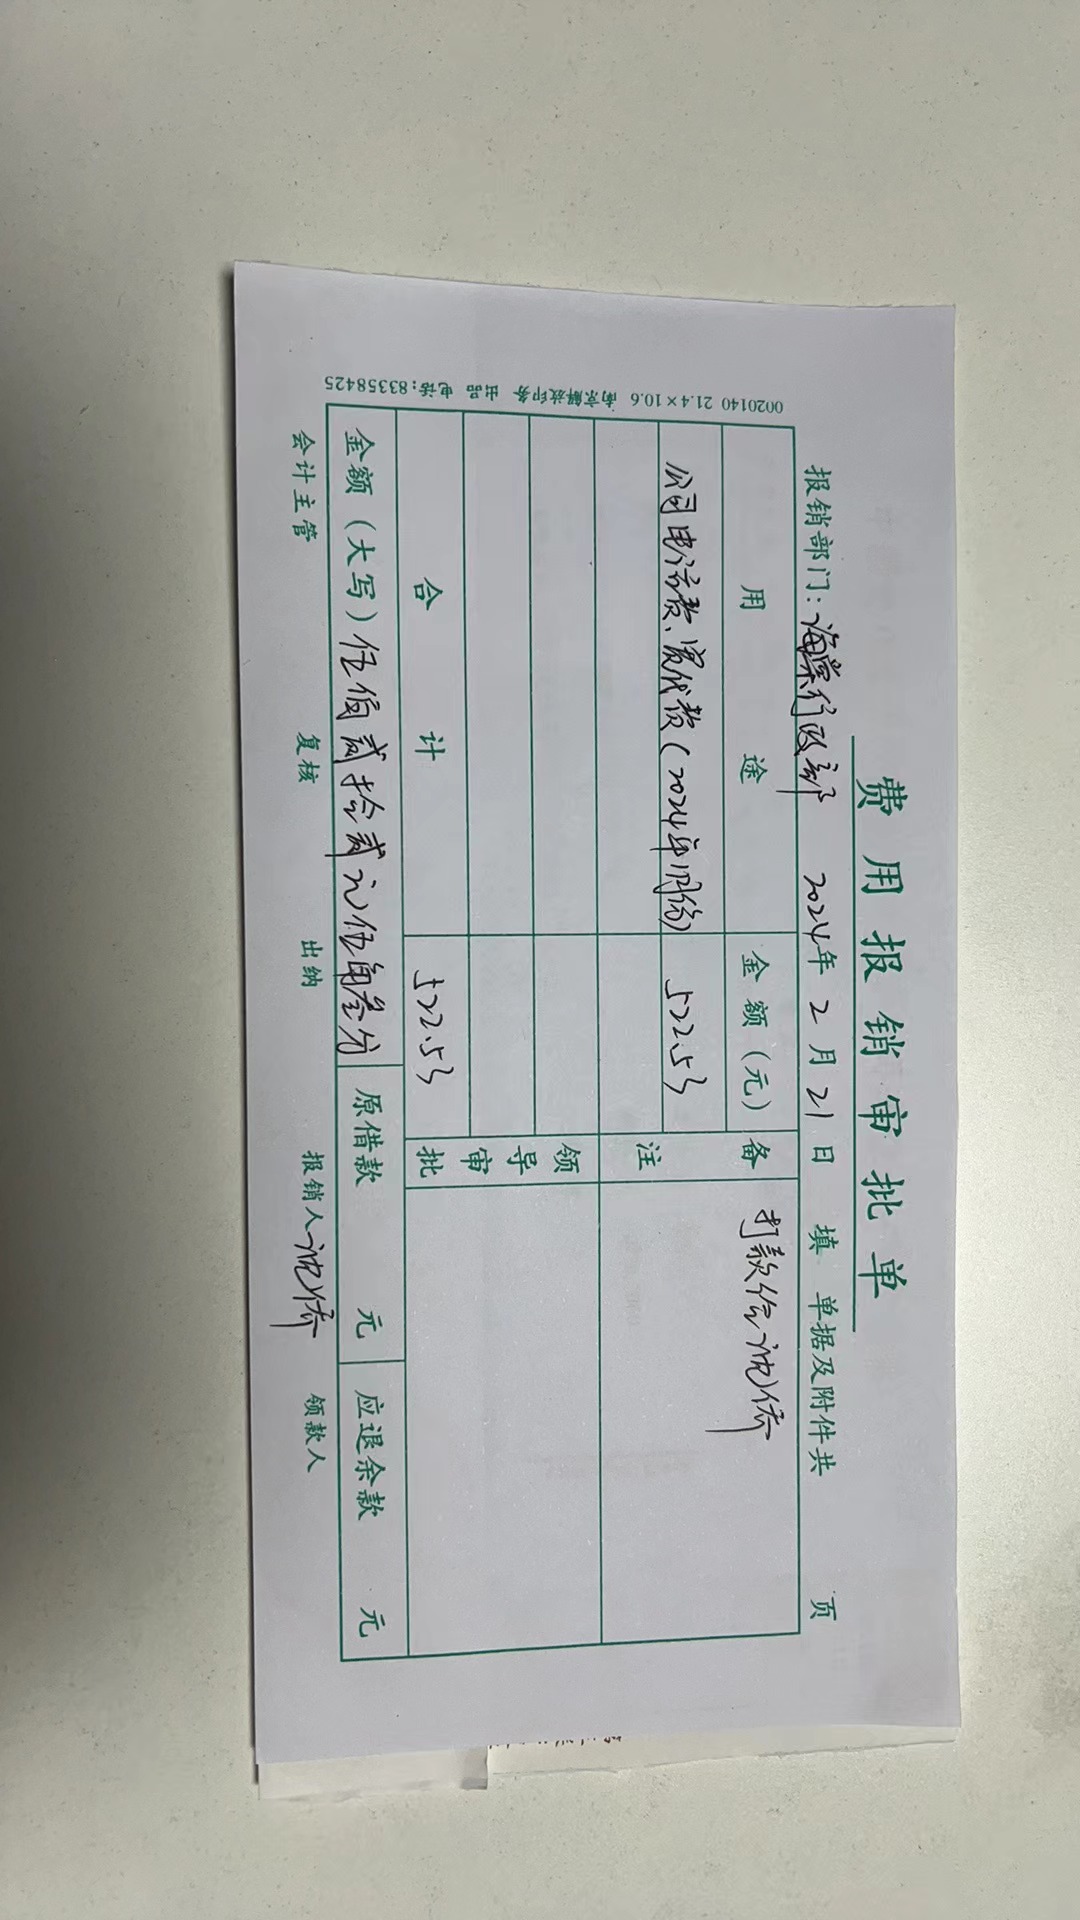 费用报销审批单
报销部门：海棠行政部 2024年2月21日 填 单据及附件共 页
用途 金额（元） 备注 打款给沈侨
公司电话费、宽代费（2024年1月份） 522.53
领导审批
合计 522.53
金额（大写）伍佰贰拾贰元伍角叁分 原借款 元 应退余款 元
会计主管 复核 出纳 报销人 沈侨 领款人
0020140 21.4×10.6 南京解放印务 出品 电话:83358425